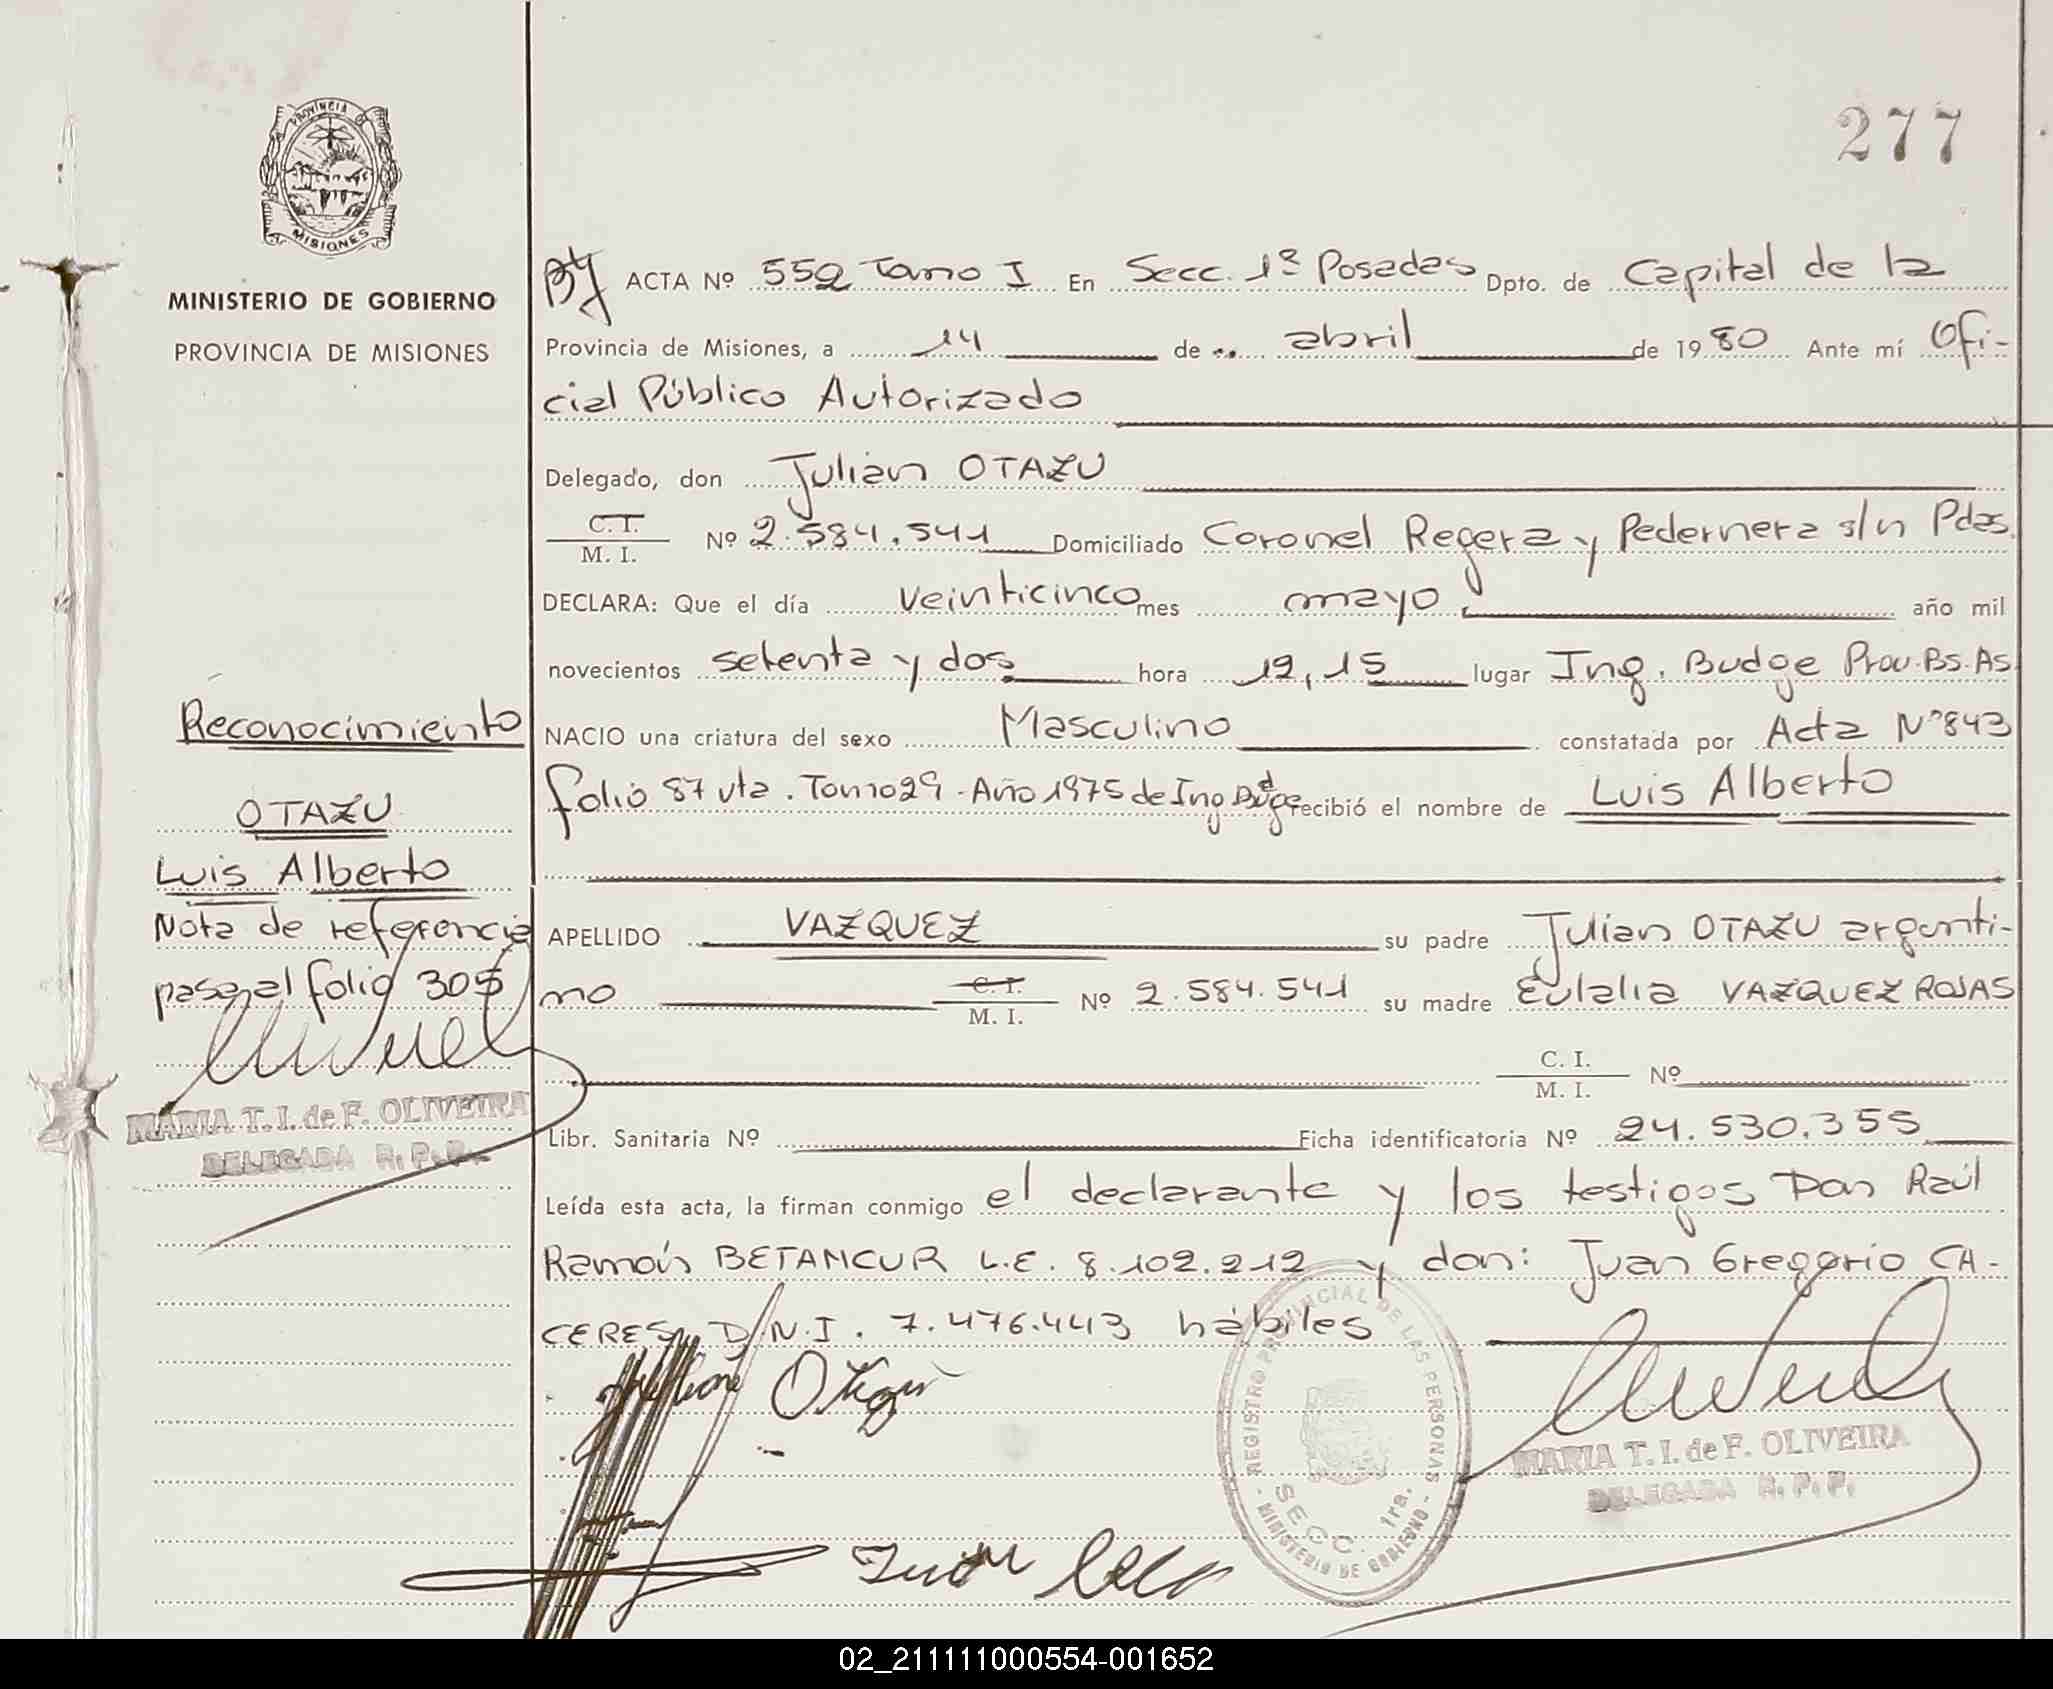 277
PROVINCIA DE
MISIONES
MINISTERIO DE GOBIERNO
PROVINCIA DE MISIONES
ACTA Nº 552 Tomo I En Secc. 1ª Posadas Dpto. de Capital de la
Provincia de Misiones, a 14 de abril de 1980 Ante mí Ofi-
cial Público Autorizado
Delegado, don Julian OTAZU
C.I.
M. I. Nº 2.584.541 Domiciliado Coronel Regera y Pedernera s/n Pdas.
DECLARA: Que el día veinticinco mes mayo año mil
novecientos setenta y dos hora 12,15 lugar Ing. Budge Prov. Bs. As.
NACIO una criatura del sexo Masculino constatada por Acta Nº 843
folio 87 vta. Tomo 29 - Año 1975 de Ing Budge recibió el nombre de Luis Alberto
APELLIDO VAZQUEZ su padre Julian OTAZU argenti-
no C.I.
M. I. Nº 2.584.541 su madre Eulalia VAZQUEZ ROJAS
C. I.
M. I. Nº
Libr. Sanitaria Nº Ficha identificatoria Nº 24.530.355
Leída esta acta, la firman conmigo el declarante y los testigos Don Raúl
Ramón BETANCUR L.E. 8.102.212 y don: Juan Gregorio CA-
CERES D.N.I. 7.476.443 hábiles
Reconocimiento
OTAZU
Luis Alberto
Nota de referencia
pasa al folio 305
MARIA T. I. de F. OLIVEIRA
DELEGADA R. P. P.
REGISTRO PROVINCIAL DE LAS PERSONAS
SECC. 1ra.
- MINISTERIO DE GOBIERNO -
MARIA T. I. de F. OLIVEIRA
DELEGADA R. P. P.
02_211111000554-001652